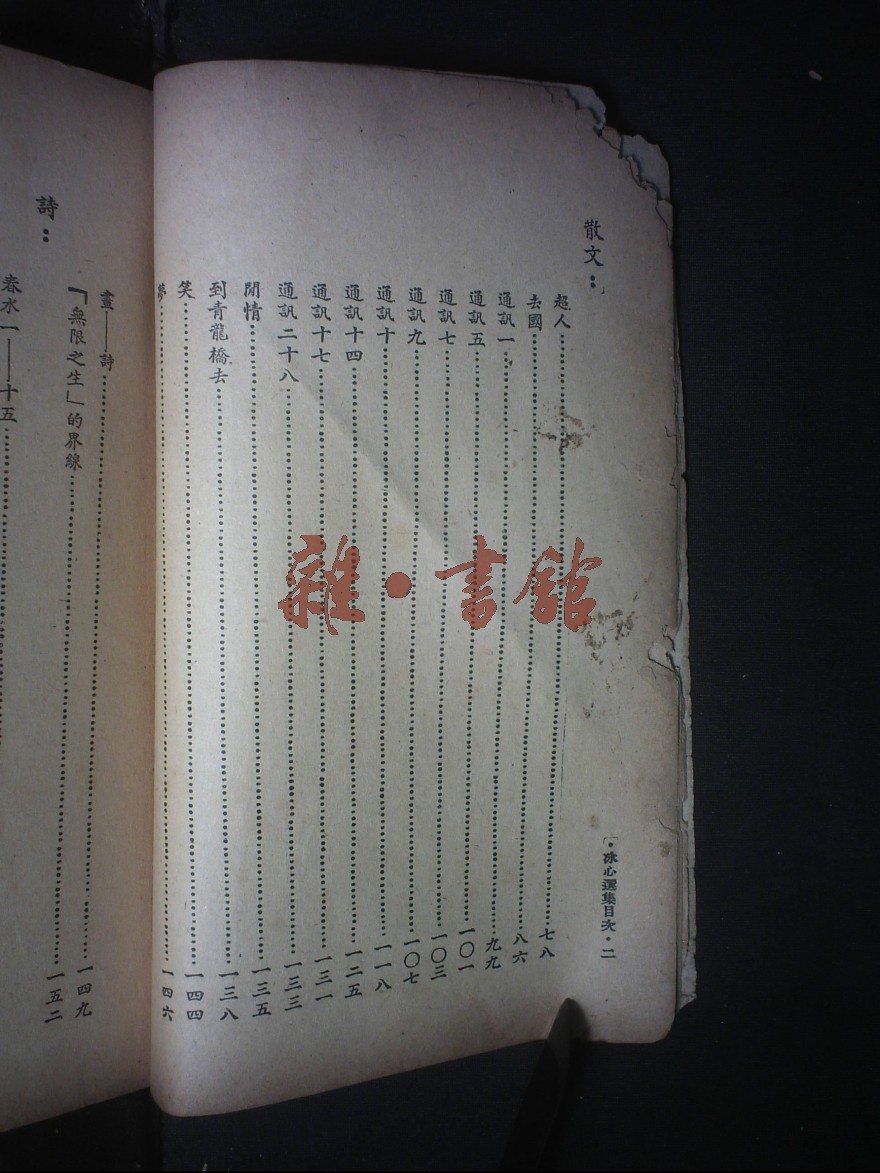 ·冰心選集目次·二
散文：
超人……七八
去國……八六
通訊一……九九
通訊五……一〇一
通訊七……一〇三
通訊九……一〇七
通訊十……一一八
通訊十四……一二五
通訊十七……一三一
通訊二十八……一三三
閒情……一三五
到青龍橋去……一三八
笑……一四四
夢……一四六
畫——詩……一四九
「無限之生」的界線……一五二
詩：
春水一——十五……
雜·書館